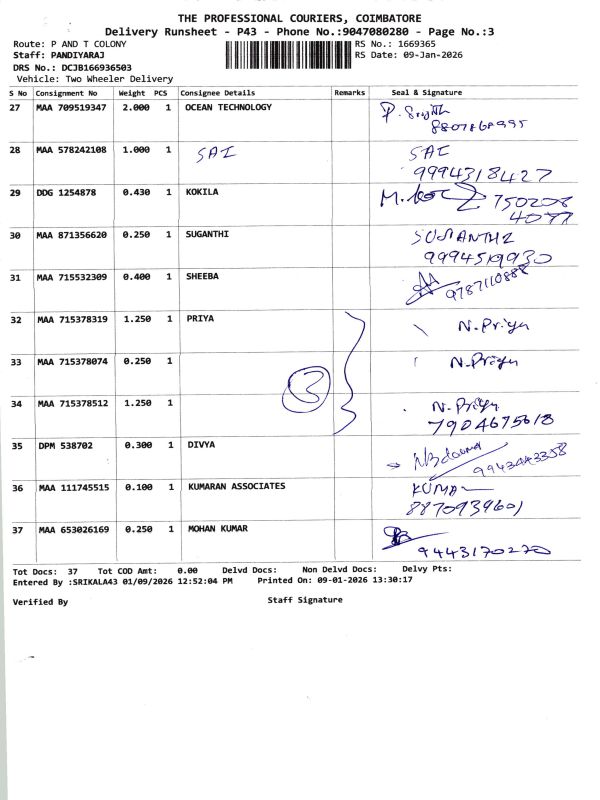 THE PROFESSIONAL COURIERS, COIMBATORE
Delivery Runsheet - P43 - Phone No.:9047080280 - Page No.:3
Route: P AND T COLONY RS No.: 1669365
Staff: PANDIYARAJ RS Date: 09-Jan-2026
DRS No.: DCJB166936503
Vehicle: Two Wheeler Delivery
S No Consignment No Weight PCS Consignee Details Remarks Seal & Signature
27 MAA 709519347 2.000 1 OCEAN TECHNOLOGY
28 MAA 578242108 1.000 1 SAI SAI
9994318427
29 DDG 1254878 0.430 1 KOKILA 750208
4077
30 MAA 871356620 0.250 1 SUGANTHI SUGANTHI
9994519930
31 MAA 715532309 0.400 1 SHEEBA 9787110888
32 MAA 715378319 1.250 1 PRIYA N. Priya
33 MAA 715378074 0.250 1 N. Priya
3
34 MAA 715378512 1.250 1 N. Priya
7904675618
35 DPM 538702 0.300 1 DIVYA
36 MAA 111745515 0.100 1 KUMARAN ASSOCIATES KUMAR
8870939601
37 MAA 653026169 0.250 1 MOHAN KUMAR
9443170270
Tot Docs: 37 Tot COD Amt: 0.00 Delvd Docs: Non Delvd Docs: Delvy Pts:
Entered By :SRIKALA43 01/09/2026 12:52:04 PM Printed On: 09-01-2026 13:30:17
Verified By Staff Signature